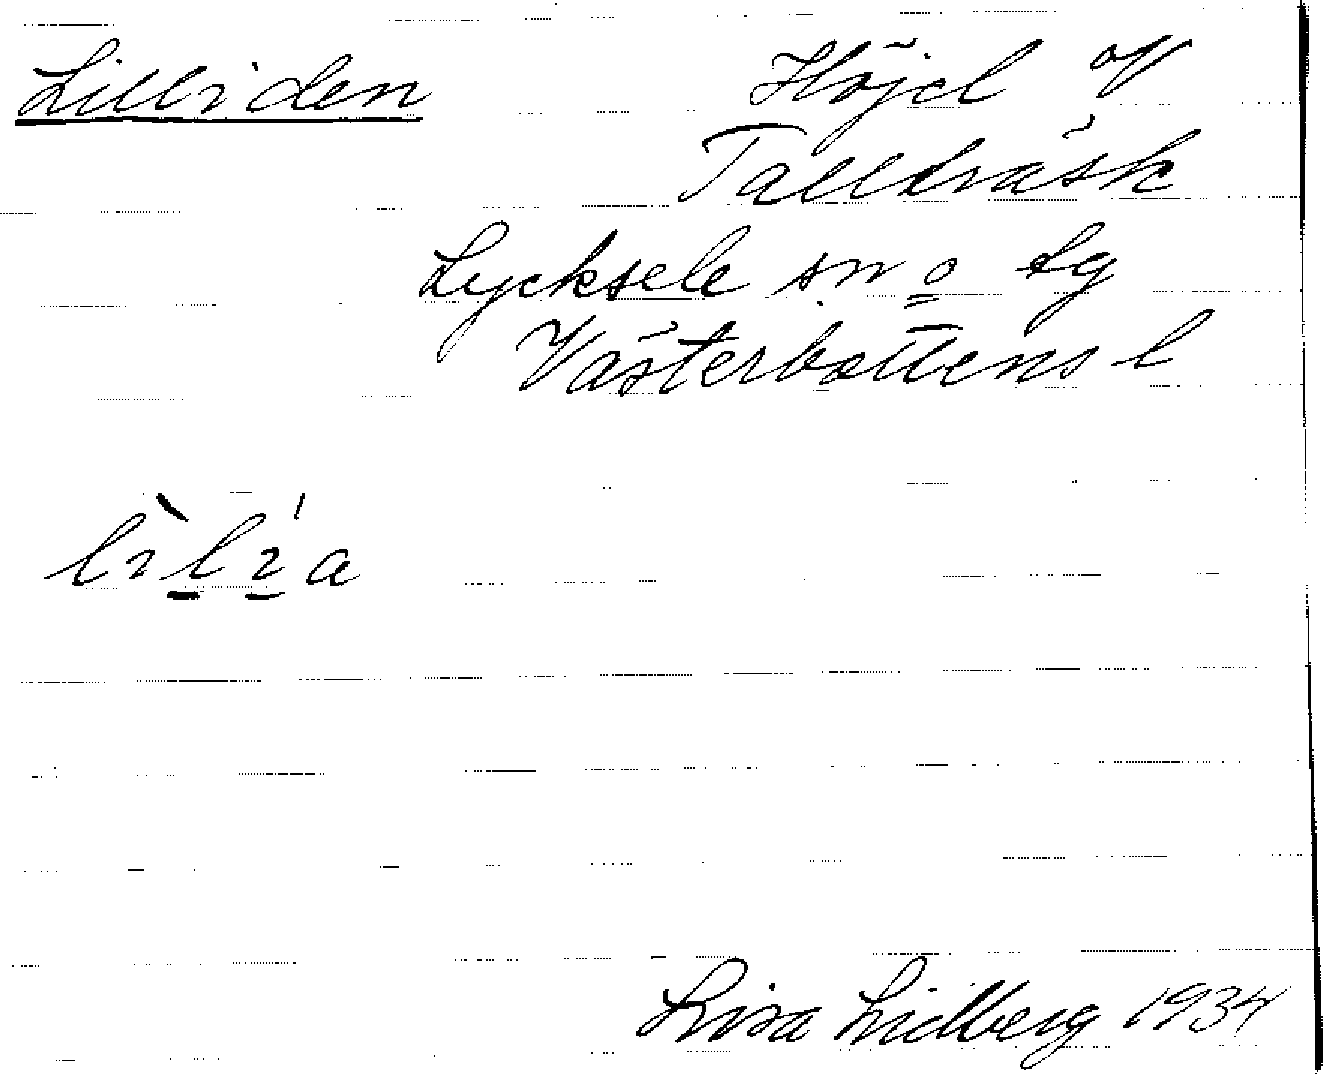 Lilliden
Höjd V
Tallträsk
Lycksele sn o lg
Västerbottens l
lìlía
Lisa Lidberg 1934